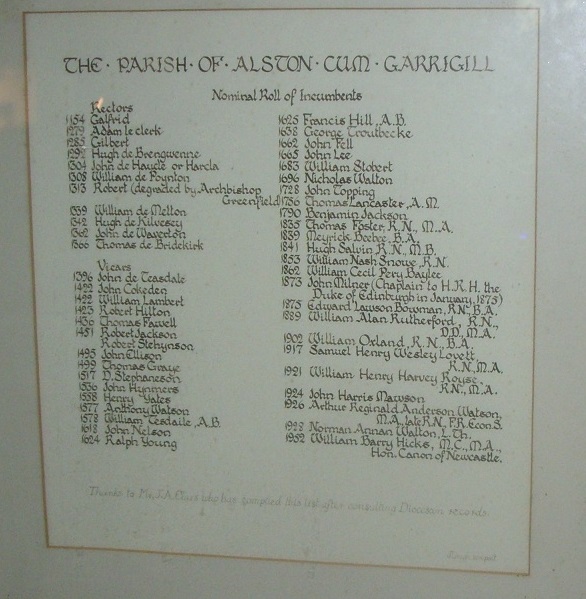 THE · PARISH · OF · ALSTON · CUM · GARRIGILL
Nominal Roll of Incumbents
Rectors
1154 Galfrid
1279 Adam le clerk
1285 Gilbert
1292 Hugh de Brengwenne
1304 John de Haucle or Harcla
1308 William de Poynton
1313 Robert (degraded by Archbishop
Greenfield)
1339 William de Metton
1342 Hugh de Kilvesey
1362 John de Waverton
1366 Thomas de Bridekirk
Vicars
1396 John de Teasdale
1422 John Cokeden
1422 William Lambert
1423 Robert Hilton
1436 Thomas Farwell
1451 Robert Jackson
Robert Stehynson
1495 John Ellison
1499 Thomas Graye
1517 D. Stephaneson
1536 John Hymmers
1558 Henry Yates
1577 Anthony Watson
1578 William Tesdaile, A.B.
1618 John Nelson
1624 Ralph Young
1625 Francis Hill, A.B.
1638 George Troutbecke
1662 John Fell
1665 John Lee
1683 William Stobert
1696 Nicholas Walton
1728 John Topping
1756 Thomas Lancaster, A.M.
1790 Benjamin Jackson
1835 Thomas Foster, R.N., M.A.
1839 Meyrick Beebee, B.A.
1841 Hugh Salvin R.N., M.B.
1853 William Nash Snowe R.N.
1862 William Cecil Fery Baylee
1873 John Milner (Chaplain to H.R.H. the
Duke of Edinburgh in January, 1875)
1875 Edward Lawson Bowman, R.N., B.A.
1889 William Alan Rutherford, R.N.,
D.D., M.A.
1902 William Oxland, R.N., B.A.
1917 Samuel Henry Wesley Lovett,
R.N., M.A.
1921 William Henry Harvey Royse,
R.N., M.A.
1924 John Harris Mawson
1926 Arthur Reginald Anderson Watson,
M.A., late R.N., F.R. Econ. S.
1928 Norman Annan Walton, L.Th.
1952 William Barry Hicks, M.C., M.A.,
Hon. Canon of Newcastle.
Thanks to Mr. J.A. who has compiled this list after consulting Diocesan records.